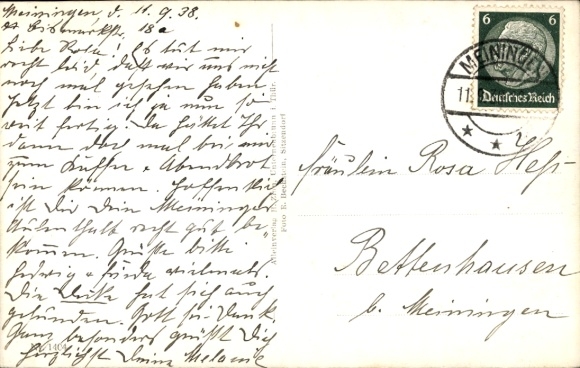 Meiningen, d. 11. 9. 38.
Bismarckstr. 18a
Liebe Rosa! Es tut mir
recht leid, daß wir uns nicht
noch mal gesehen haben.
Jetzt bin ich ja nun so
weit fertig. Da hättet Ihr
dann doch mal bei uns
zum Kaffee + Abendbrot
sein können. Hoffentlich
ist Dir Dein Meininger
Aufenthalt recht gut be-
kommen. Grüße bitte
Hedwig + Frieda vielmals.
Die Decke hat sich auch
gefunden. Gott sei Dank.
Ganz besonders grüßt Dich
herzlichst Deine Melanie
1404
Foto E. Bechstein, Sitzendorf
6 6
Deutsches Reich
MEININGEN
11.
Fräulein Rosa Heß
Bettenhausen
b. Meiningen